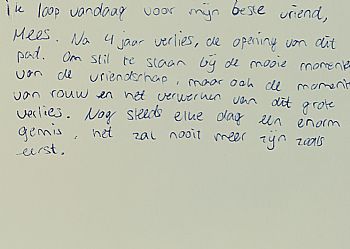 Ik loop vandaag voor mijn beste vriend,
Mees. Na 4 jaar verlies, de opening van dit
pad. Om stil te staan bij de mooie momenten
van de vriendschap, maar ook de momenten
van rouw en het verwerken van dit grote
verlies. Nog steeds elke dag een enorm
gemis, het zal nooit meer zijn zoals
eerst.